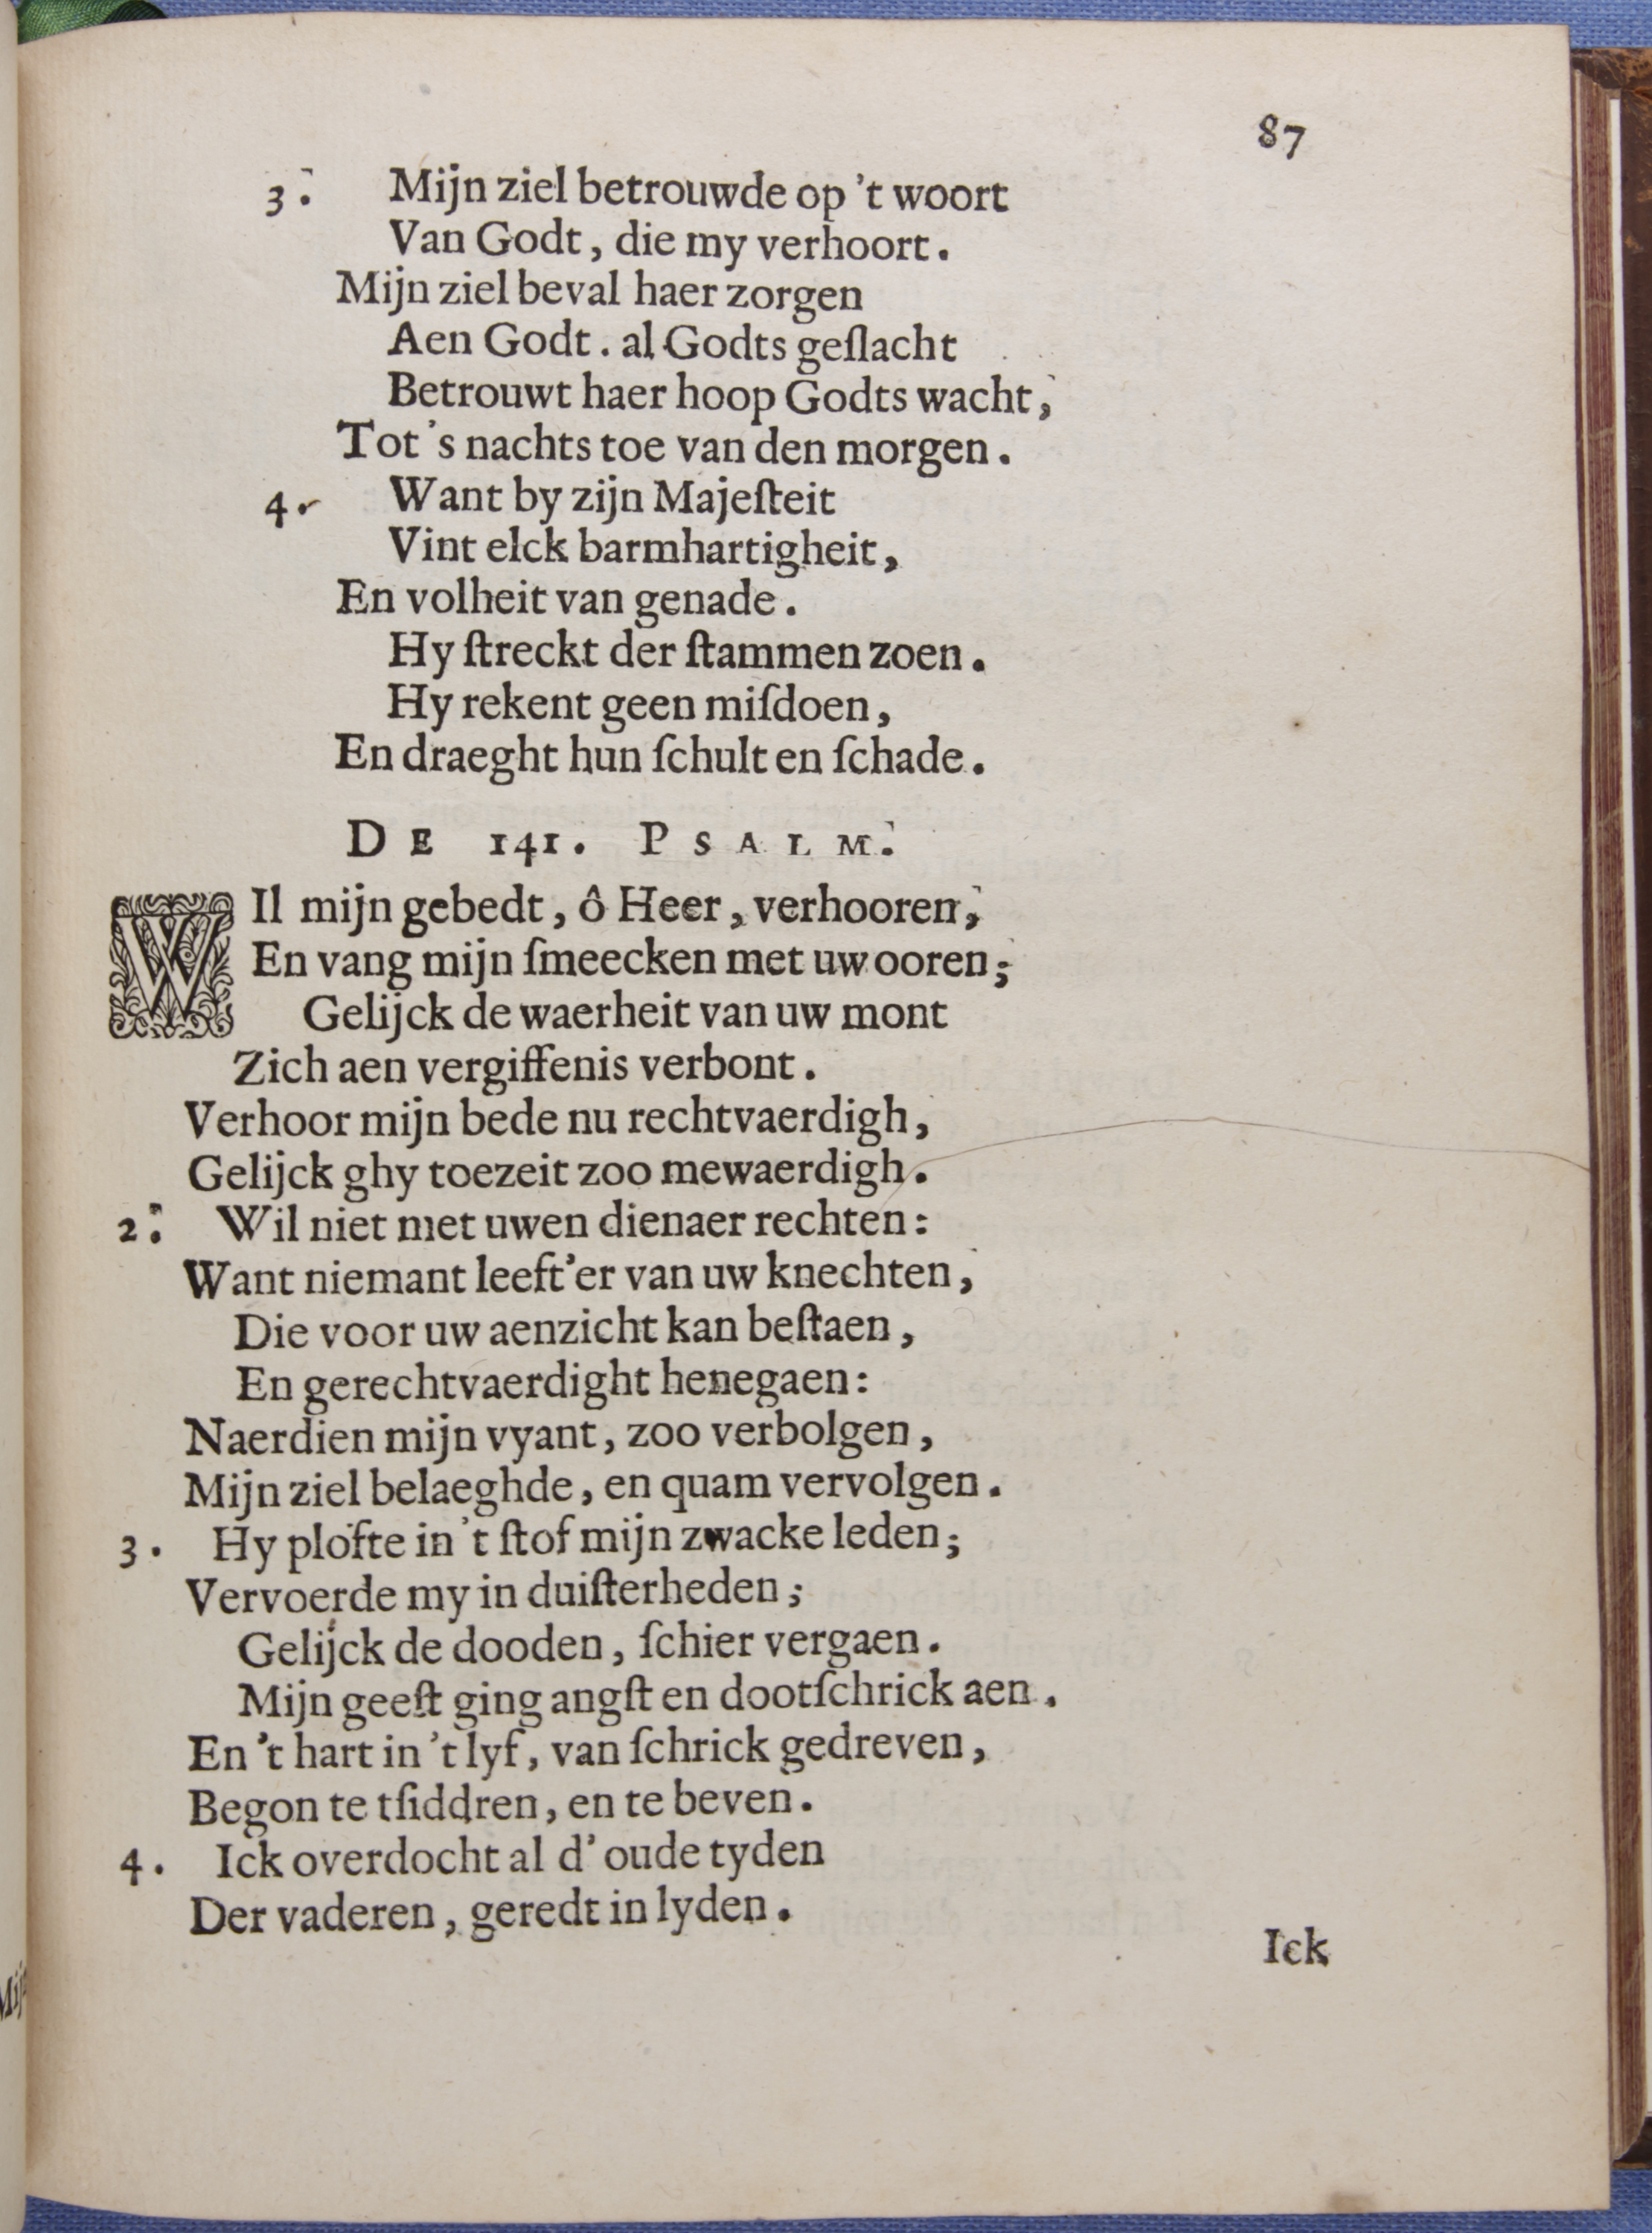 87
3. Mijn ziel betrouwde op 't woort
Van Godt, die my verhoort.
Mijn ziel beval haer zorgen
Aen Godt. al Godts geſlacht
Betrouwt haer hoop Godts wacht,
Tot 's nachts toe van den morgen.
4. Want by zijn Majeſteit
Vint elck barmhartigheit,
En volheit van genade.
Hy ſtreckt der ſtammen zoen.
Hy rekent geen miſdoen,
En draeght hun ſchult en ſchade.
DE 141. PSALM.
WIl mijn gebedt, ô Heer, verhooren,
En vang mijn ſmeecken met uw ooren;
Gelijck de waerheit van uw mont
Zich aen vergiffenis verbont.
Verhoor mijn bede nu rechtvaerdigh,
Gelijck ghy toezeit zoo mewaerdigh.
2. Wil niet met uwen dienaer rechten:
Want niemant leeft'er van uw knechten,
Die voor uw aenzicht kan beſtaen,
En gerechtvaerdight henegaen:
Naerdien mijn vyant, zoo verbolgen,
Mijn ziel belaeghde, en quam vervolgen.
3. Hy plofte in 't ſtof mijn zwacke leden;
Vervoerde my in duiſterheden;
Gelijck de dooden, ſchier vergaen.
Mijn geeſt ging angſt en dootſchrick aen.
En 't hart in 't lyf, van ſchrick gedreven,
Begon te tſiddren, en te beven.
4. Ick overdocht al d' oude tyden
Der vaderen, geredt in lyden.
Ick